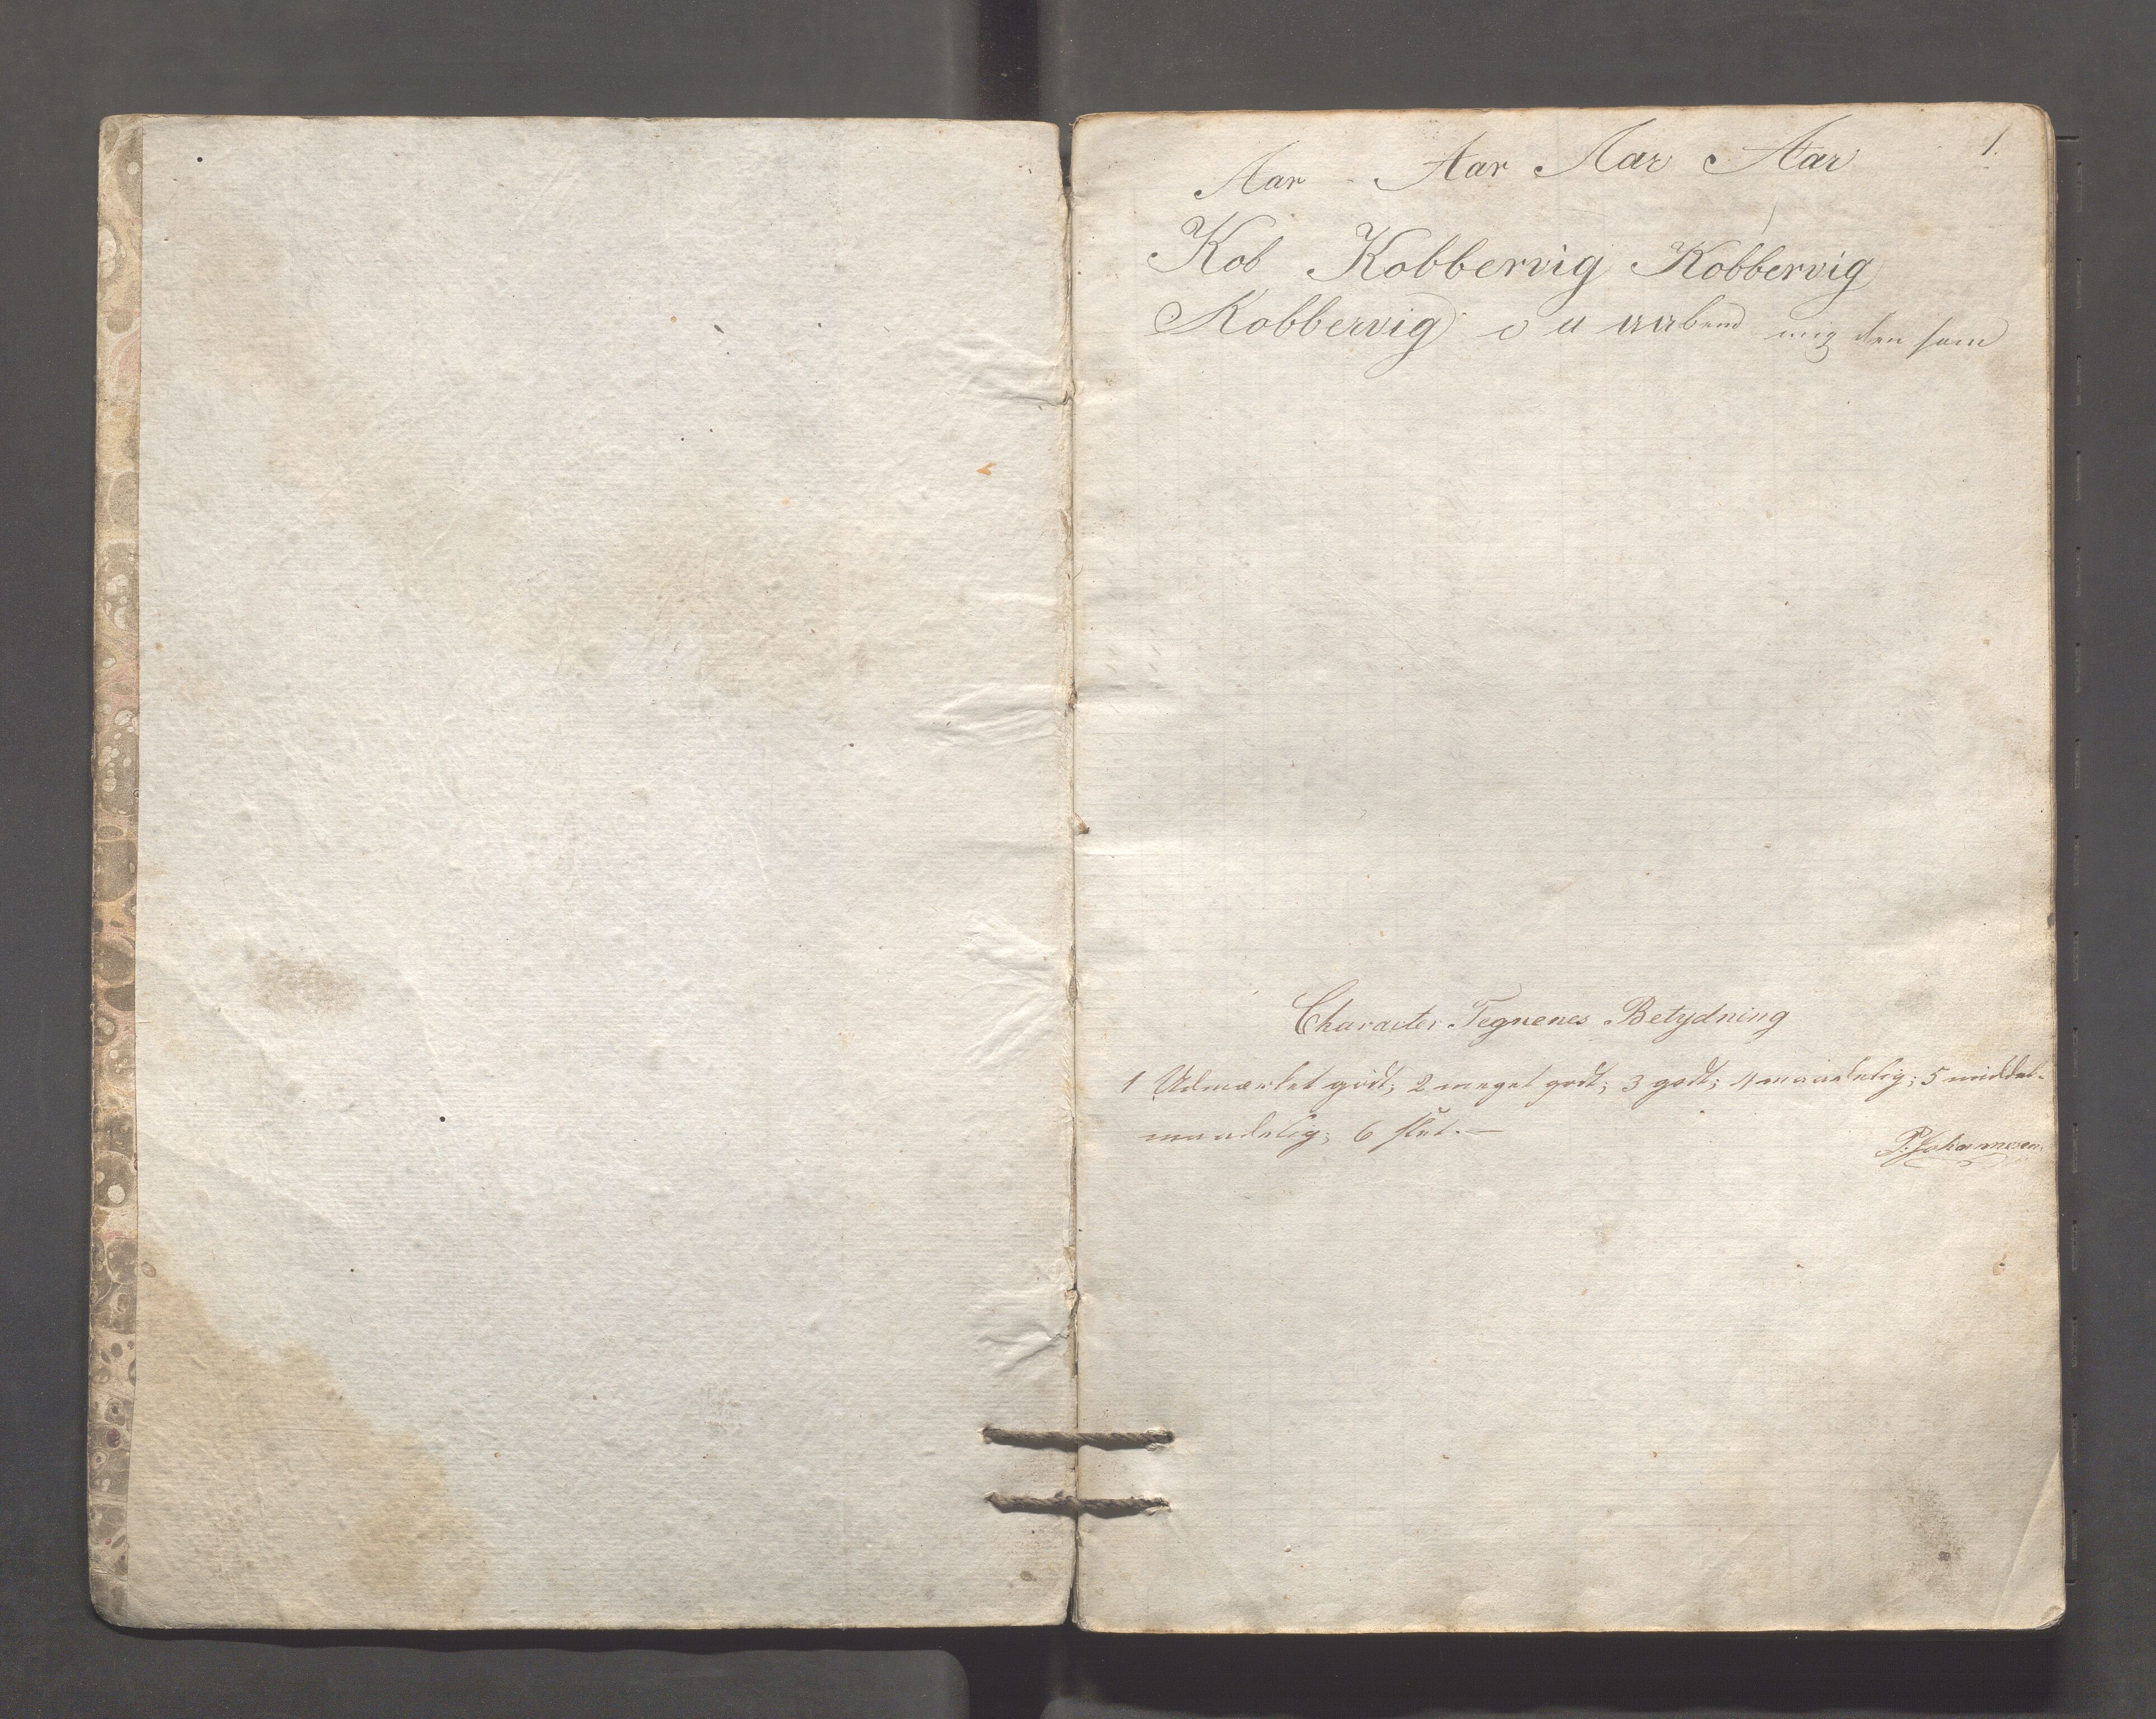 1.
Aar Aar Aar Aar
Kob Kobbervig Kobbervig
Kobbervig o u mig den som
Character Tegnenes Betydning
1 Udmærket godt; 2 meget godt; 3 godt; 4 maadelig; 5 middel-
maadelig; 6 slet. —
P. Johannesen.